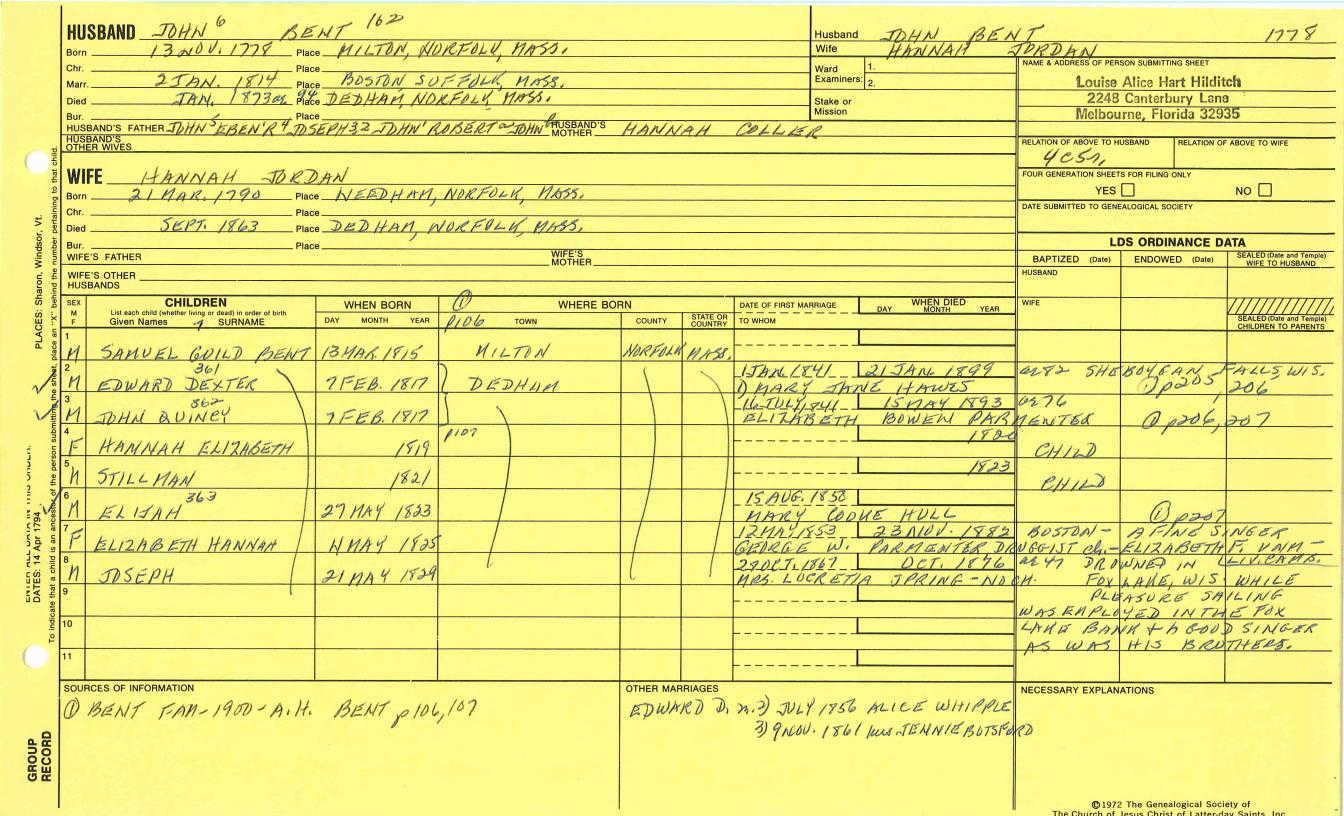 HUSBAND JOHN 6 BENT 162
Born 13 NOV. 1778 Place MILTON, NORFOLK, MASS.
Chr. Place
Marr. 2 JAN. 1814 Place BOSTON SUFFOLK, MASS.
Died JAN. 1873 ae 94 Place DEDHAM, NORFOLK, MASS.
Bur. Place
HUSBAND'S FATHER JOHN 5 EBEN'R 4 JOSEPH 3,2 JOHN 1 ROBERT a JOHN HUSBAND'S MOTHER HANNAH COLLIER
HUSBAND'S OTHER WIVES
WIFE HANNAH JORDAN
Born 21 MAR. 1790 Place NEEDHAM, NORFOLK, MASS.
Chr. Place
Died SEPT. 1863 Place DEDHAM, NORFOLK, MASS.
Bur. Place
WIFE'S FATHER WIFE'S MOTHER
WIFE'S OTHER HUSBANDS
Husband JOHN BENT 1778
Wife HANNAH JORDAN
Ward Examiners: 1.
2.
Stake or Mission
NAME & ADDRESS OF PERSON SUBMITTING SHEET
Louise Alice Hart Hilditch
2248 Canterbury Lane
Melbourne, Florida 32935
RELATION OF ABOVE TO HUSBAND RELATION OF ABOVE TO WIFE
4C5r,
FOUR GENERATION SHEETS FOR FILING ONLY
YES NO
DATE SUBMITTED TO GENEALOGICAL SOCIETY
LDS ORDINANCE DATA
BAPTIZED (Date) ENDOWED (Date) SEALED (Date and Temple) WIFE TO HUSBAND
HUSBAND
WIFE
SEALED (Date and Temple) CHILDREN TO PARENTS
SEX M F
CHILDREN
List each child (whether living or dead) in order of birth
Given Names 7 SURNAME
WHEN BORN
DAY MONTH YEAR
① WHERE BORN
p106 TOWN COUNTY STATE OR COUNTRY
DATE OF FIRST MARRIAGE
TO WHOM
WHEN DIED
DAY MONTH YEAR
1 M SAMUEL GUILD BENT 13 MAR. 1815 MILTON NORFOLK MASS.
361
2 M EDWARD DEXTER 7 FEB. 1817 DEDHAM 1 JAN. 1841 21 JAN 1899 ae 82 SHEBOYGAN FALLS, WIS.
1) MARY JANE HAWES ① p205, 206
362
3 M JOHN QUINCY 7 FEB. 1817 16 JULY, 1841 15 MAY 1893 ae 76
ELIZABETH BOWEN PARMENTER ① p206, 207
4 F HANNAH ELIZABETH 1819 p107 1820 CHILD
5 M STILLMAN 1821 1823 CHILD
363
6 M ELIJAH 27 MAY 1823 15 AUG. 1850
MARY COOUE HULL ① p207
7 F ELIZABETH HANNAH 4 MAY 1825 12 MAY, 1853 23 NOV. 1882 BOSTON - A FINE SINGER
GEORGE W. PARMENTER DRUGGIST ch.-ELIZABETH F. UNM - LIV. CAMB.
8 M JOSEPH 21 MAY 1829 29 OCT. 1867 OCT. 1876 ae 47 DROWNED IN
MRS. LUCRETIA SPRING - NO CH. FOX LAKE, WIS. WHILE
PLEASURE SAILING
WAS EMPLOYED IN THE FOX
LAKE BANK + A GOOD SINGER
AS WAS HIS BROTHERS.
9
10
11
SOURCES OF INFORMATION
① BENT FAM-1900-A.H. BENT p106, 107
OTHER MARRIAGES
EDWARD D. m. 2) JULY 1856 ALICE WHIPPLE
3) 9 NOV. 1861 Mrs. JENNIE BOTSFORD
NECESSARY EXPLANATIONS
©1972 The Genealogical Society of
The Church of Jesus Christ of Latter-day Saints, Inc.
PLACES: Sharon, Windsor, Vt.
ENTER ALL DATA IN THIS ORDER:
DATES: 14 Apr 1794
To indicate that a child is an ancestor of the person submitting the sheet, place an "X" behind the number pertaining to that child.
GROUP RECORD